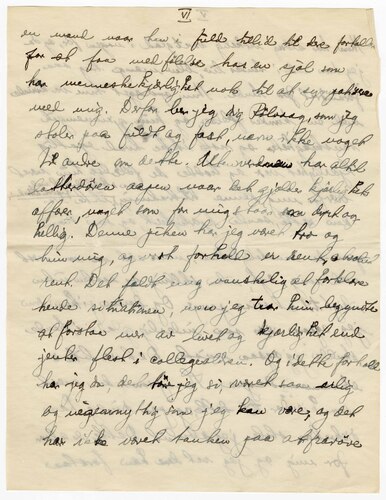 VI
en mand naar han i fuld tillid til dre forhold
for at faa medfølelse har en sjæl som
har menneskekjærlighet nok til at sympatisere
med mig. Derfor ber jeg dig Solvaag, som jeg
stoler paa fuldt og fast, nævn ikke noget
til andre om dette. Utenverdenen har altid
latterdøren aapen naar det gjelder kjærlighets
affærer, noget som for mig staar som dyrt og
hellig. Denne piken har jeg været tro og
hun mig, og vort forhold er rent, absolut
rent. Det faldt mig vanskelig at forklare
hende situationen, men jeg tror hun begynte
at forstaa mer av livet og kjærlighet end
jenter flest i collegealderen. Og i dette forhold
har jeg og, det tør jeg si, været saa ærlig
og uegennyttig som jeg kan være, og det
har ikke været tanken paa at